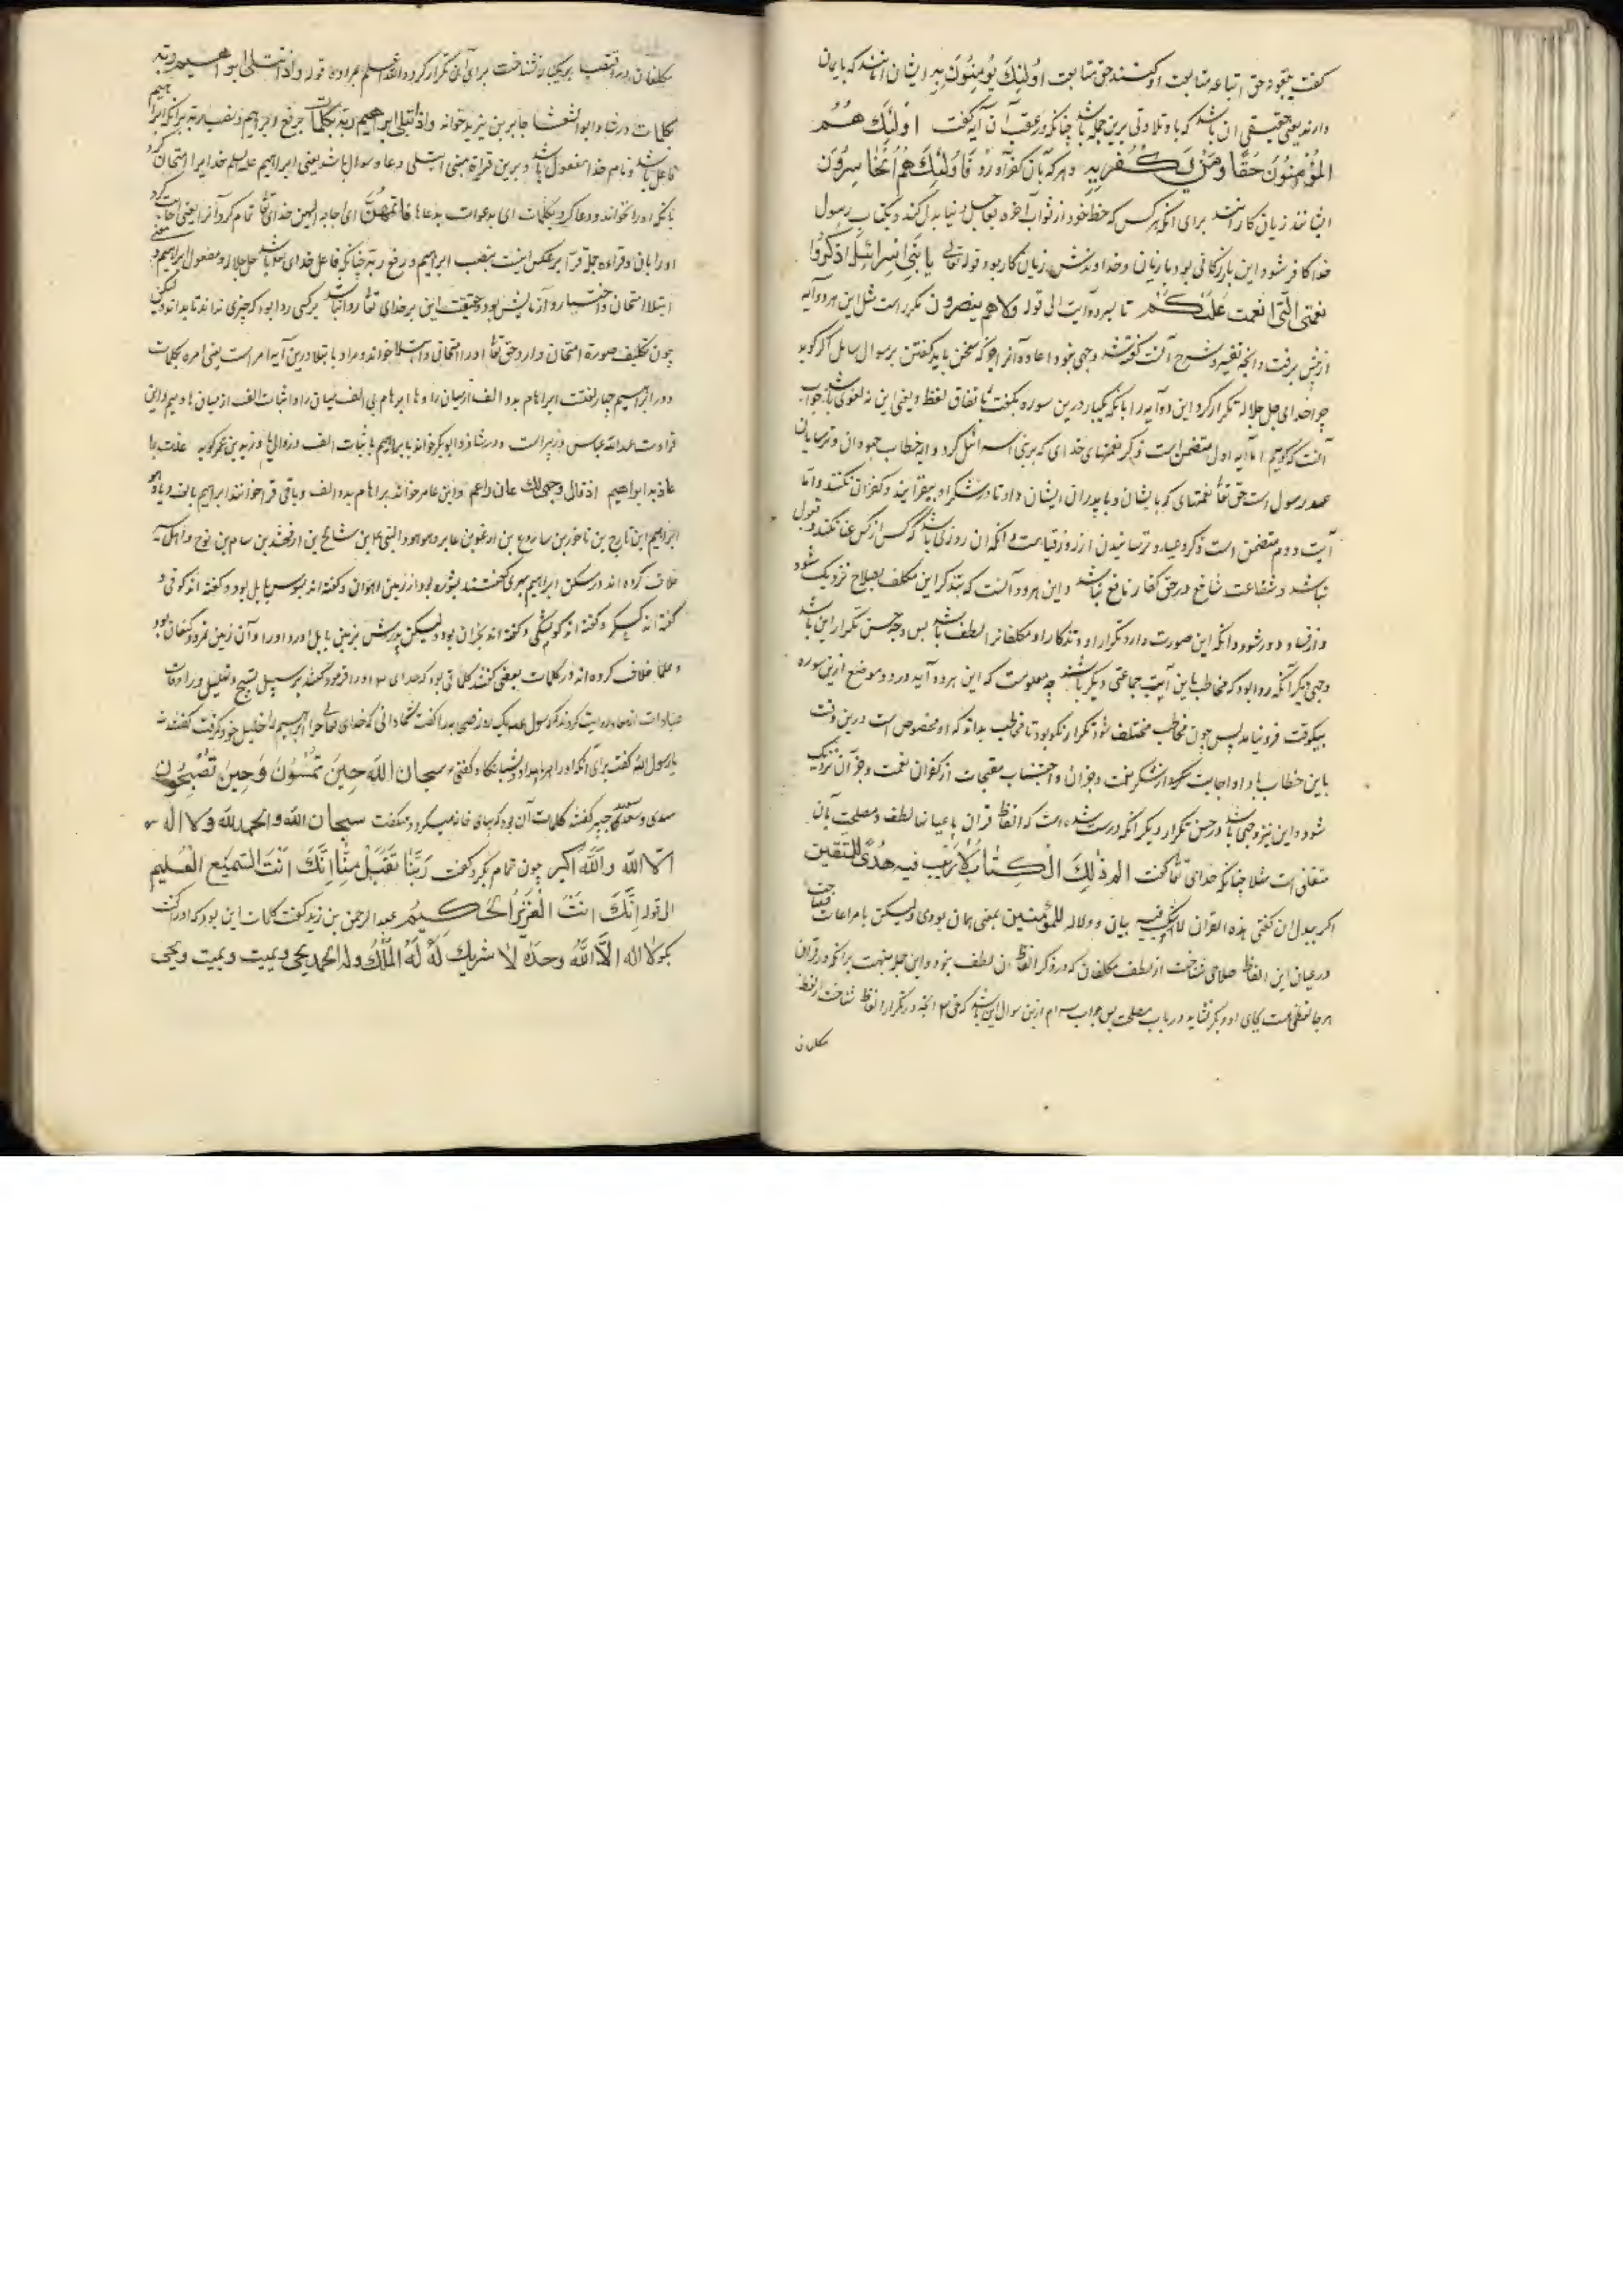 گفت یتبعونه حق اتباعه متابعت او کنند حق متابعت اولئک یؤمنون به ایشان آنانند که بایمان
دارند یعنی حقیقی آن باشد که با و تلاوتی برین جمله باشد چنانکه در عقب آن آیه گفت اولئک هم
المؤمنون حقا و من یکفر به و هر که بآن کفر آورد فاولئک هم الخاسرون
ایشانند زیان کاران برای آنکه هر کس که حظ خود از ثواب آخرة بعاجل دنیا بدل کند و بکتاب و رسول
خدا کافر شود این بازرگانی بود بازیان و خداوندش زیان کار بود قوله تعالی یا بنی اسرائیل اذکروا
نعمتی التی انعمت علیکم تا بسر دو آیت الی قوله ولا هم ینصرون مکرر است مثل این هر دو آیه
از پیش برفت و آنچه تفسیر و شرح آنست گفته شد وجهی نبود اعاده آنرا جز که سخن باید گفتن بر سوال سایل اگر گوید
چرا خدای جل جلاله تکرار کرد این دو آیه را با آنکه یکبار درین سوره بگفت باتفاق لفظ و معنی این نه لغوی باشد جواب
آنست که گوییم اما آیه اول متضمن است ذکر نعمتهای خدای که بر بنی اسرائیل کرد و این خطاب جهودان و ترسایان
عهد رسول است حق تعالی نعمتهای که با ایشان و با پدران ایشان داد تا در شکر او بیفزایند و کفران نکنند و اما
آیت دوم متضمن است ذکر وعید و ترسانیدن از روز قیامت و آنکه آن روزی باشد که کس از کس غنا نکند و قبول
نباشد و شفاعت شافع در حق کفار نافع نباشد و این هر دو آنست که بتذکر این مکلف بصلاح نزدیک شود
و از فساد دور شود و آنکه این صورت دارد تکرار او و تذکار او مکلفانرا لطف باشد پس وجه حسن تکرار این باشد
وجهی دیگر آنکه روا بود که مخاطب باین آیت جماعتی دیگر باشند چه معلومست که این هر دو آیه در دو موضع ازین سوره
بیکوقت فرو نیامد پس چون مخاطب مختلف شود تکرار نکو بود تا مخاطب بداند که او مخصوص است درین وقت
باین خطاب با دا واجابت شکر نعمت و جز آن و اجتناب مقبحات از کفران نعمت و جز آن نزدیک
شود و این نیز وجهی باشد در حسن تکرار دیگر آنکه درست شده است که الفاظ قرآن باعیانها لطف و مصلحت بآن
متعلق است مثلا چنانکه خدای تعالی گفت الم ذلک الکتاب لا ریب فیه هدی للمتقین
اگر ببدل آن گفتی هذه القرآن لا شک فیه بیان و دلاله للمؤمنین بمعنی همان بودی ولیکن با مراعات فصاحت
در عیان این الفاظ صلاحی شناخت از لطف مکلفان که در ذکر الفاظ آن لطف نبود و این جمله منبهت بر آنکه در قرآن
هر جا لفظی هست بجای او دیگر نشاید در باب مصلحت پس جواب سوم ازین سوال این باشد که حق تعالی آنچه در تکرار الفاظ شناخت از لطف
مکلفان
مکلفان در اقتضا بریکبار نشناخت برای آن تکرار کرد والله اعلم بمراده قوله و اذ ابتلی ابراهیم ربه
بکلمات در شاذ ابو الشعثا جابر بن یزید خواند و اذ ابتلی ابراهیم ربه بکلمات برفع ابراهیم و نصب ربه بر آنکه ابراهیم
فاعل باشد و نام خدا مفعول باشد و برین قراءة معنی ابتلی دعا و سوال باشد یعنی ابراهیم علیه السلم خدایرا امتحان کرد
بآنکه او را بخواند و دعا کرد بکلمات ای بدعوات بدعاها فاتمهن ای اجابه الیهن خدای تعالی تمام کرد آنرا یعنی اجابت کرد
او را بآن و قراءه جمله قرا بر عکس اینست بنصب ابراهیم و رفع ربه چنانکه فاعل خدای باشد جل جلاله و مفعول ابراهیم و معنی
ابتلا امتحان و اختبار و آزمایش بود و حقیقت این بر خدای تعالی روا نباشد بر کسی روا بود که چیزی نداند تا بداند ولیکن
چون تکلیف صورة امتحان دارد حق تعالی او را امتحان و ابتلا خواند و مراد بابتلا درین آیه امر است یعنی امره بکلمات
و در ابراهیم چهار لغتست ابراهام بدو الف از میان را و ها ابرهام بی الف میان را و اثبات الف از میان ها و میم و این
قراءت عبدالله عباس و زبیر است و در شاذ ابو بکر خواند ابراهیم باثبات الف و زوال یا و زید بن عمر گوید عذت بما
عاذ به ابراهیم اذ قال وجهی لک عان راغم و ابن عامر خواند ابراهام بدو الف و باقی قرا خوانند ابراهیم بالف و یا و هو
ابراهیم ابن تارح بن ناخور بن ساروغ بن ارغو بن عابر و هو هود النبی بن شالخ بن ارفخشد بن سام بن نوح و اهل سیر
خلاف کرده اند در مسکن ابراهیم بهری گفتند بشوره بود از زمین اهواز و گفته اند بسوس بابل بود و گفته اند کوفی و
گفته اند کسکر و گفته اند کوثی و گفته اند بحران بود ولیکن پدرش بزمین بابل آورد او را و آن زمین نمرود کنعان بود
و علما خلاف کرده اند در کلمات بعضی گفتند کلماتی بود که خدای تعالی او را فرمود گفتند بر سبیل تسبیح و تهلیل و در اوقات
عبادات از معاذ روایت کردند که رسول علیه السلم یک روز صحابه را گفت شما دانی که خدای تعالی چرا ابراهیم را خلیل خود گرفت گفتند نه
یا رسول الله گفت برای آنکه او را هر بامداد و شبانگاه گفتی سبحان الله حین تمسون و حین تصبحون
سدی و سعید جبیر گفتند کلمات آن بود که بنای خانه میکرد و میگفت سبحان الله و الحمد لله و لا اله
الا الله و الله اکبر چون تمام بکرد گفت ربنا تقبل منا انک انت السمیع العلیم
الی قوله انک انت العزیز الحکیم عبد الرحمن بن زید گفت کلمات این بود که او را گفت
بگو لا اله الا الله وحده لا شریک له له الملک و له الحمد یحیی و یمیت و یمیت و یحیی